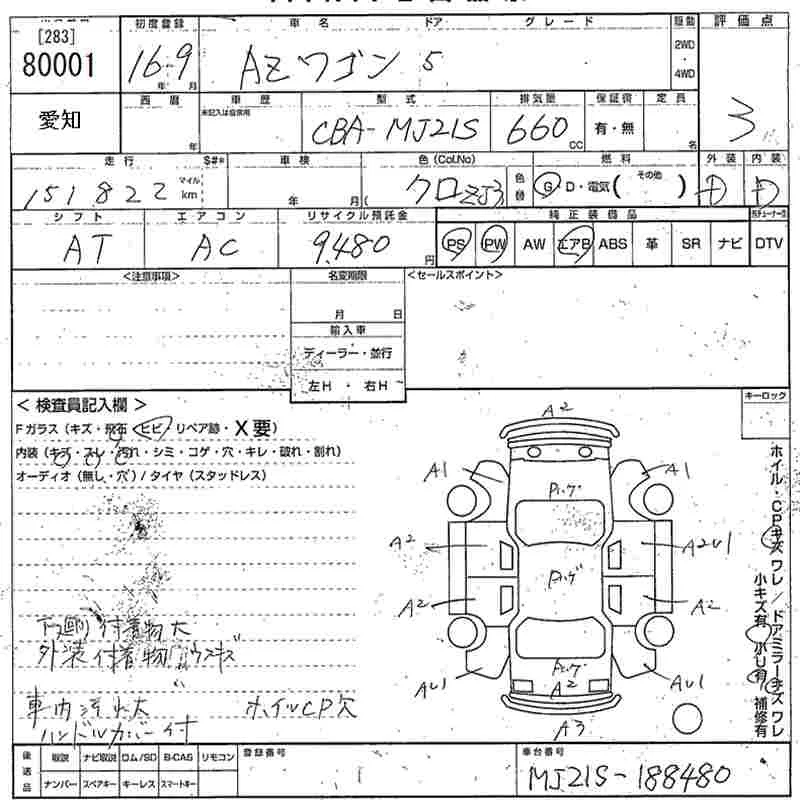 [283]
80001
愛知
初度登録 車名 ドア グレード 駆動 評価点
16年9月 AZワゴン 5 2WD・4WD 3
西暦 年 車歴 型式 排気量 保証書 定員
未記入は自家用 CBA-MJ21S 660cc 有・無 名
走行 S#* 車検 色(Col.No) 燃料 外装 内装
151822 マイル km 年 月( クロZJ3 色替 G D・電気( その他 ) D D
シフト エアコン リサイクル預託金 純正装備品
AT AC 9,480円 PS PW AW エアB ABS 革 SR ナビ DTV
<注意事項> 名変期限 <セールスポイント>
月 日
輸入車
ディーラー・並行
左H ・ 右H
<検査員記入欄>
Fガラス(キズ・飛石・ヒビ・リペア跡・X要)
内装(キズ・スレ・汚れ・シミ・コゲ・穴・キレ・破れ・割れ)
オーディオ(無し・穴)/タイヤ(スタッドレス)
キーロック
ホイル・CPキズ ワレ/ドアミラーキズ ワレ
小キズ有 小U有 補修有
A2
A1 A1
Pタゲ
A2 A2U1
Pタゲ
A2 A2
Pタゲ
AU1 A2 AU1
A3
下廻り付着物大
外装付着物ウスキズ
車内汚れ大 ホイルCP欠
ハンドルカバー付
後送品 取説 ナビ取説 ロム/SD B-CAS リモコン 登録番号 車台番号
ナンバー スペアキー キーレス スマートキー MJ21S-188480